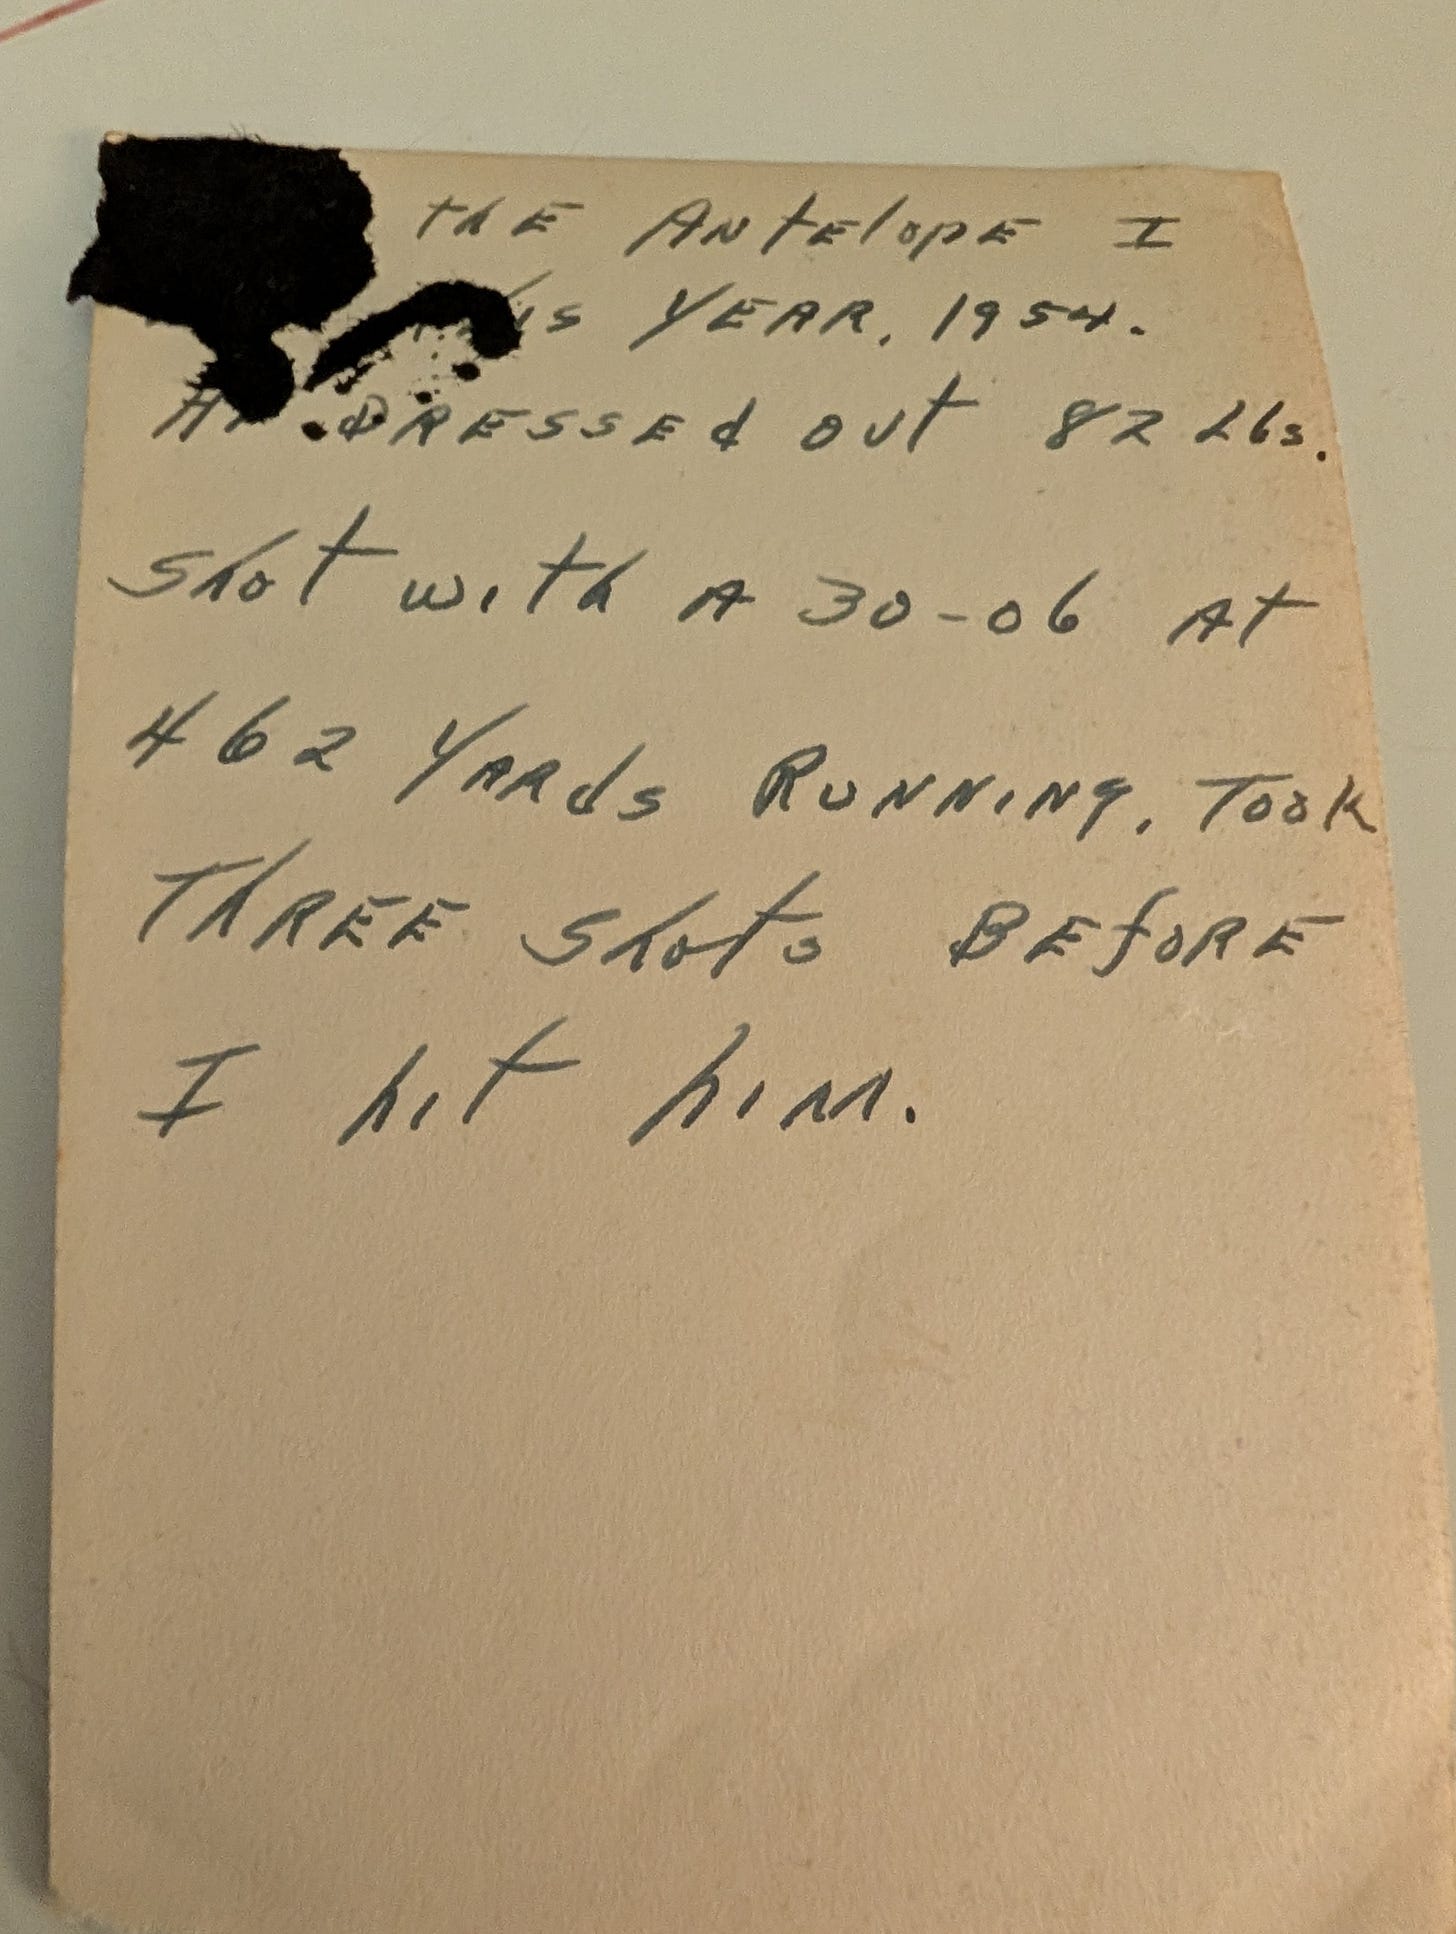 thE AntElopE I
YEAR, 1954.
dRESSEd out 82 Lbs.
Shot with A 30-06 At
462 YARds RUNNiNg, TooK
ThREE Shots BEfoRE
I hit him.